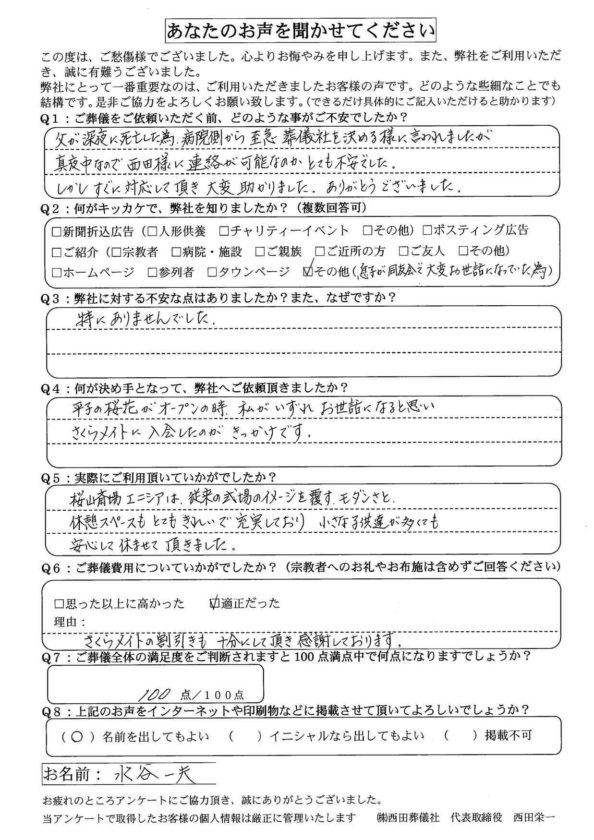 あなたのお声を聞かせてください
この度は、ご愁傷様でございました。心よりお悔やみを申し上げます。また、弊社をご利用いただ
き、誠に有難うございました。
弊社にとって一番重要なのは、ご利用いただきましたお客様の声です。どのような些細なことでも
結構です。是非ご協力をよろしくお願い致します。(できるだけ具体的にご記入いただけると助かります)
Q1:ご葬儀をご依頼いただく前、どのような事がご不安でしたか?
父が深夜に死亡した為、病院側から至急葬儀社を決める様に言われましたが
真夜中なので西田様に連絡が可能なのかとても不安でした。
しかしすぐに対応して頂き大変助かりました。ありがとうございました。
Q2:何がキッカケで、弊社を知りましたか?(複数回答可)
□新聞折込広告(□人形供養 □チャリティーイベント □その他)□ポスティング広告
□ご紹介(□宗教者 □病院・施設 □ご親族 □ご近所の方 □ご友人 □その他)
□ホームページ □参列者 □タウンページ ☑その他(息子が同友会で大変お世話になっていた為)
Q3:弊社に対する不安な点はありましたか?また、なぜですか?
特にありませんでした。
Q4:何が決め手となって、弊社へご依頼頂きましたか?
平子の桜花がオープンの時、私がいずれお世話になると思い
さくらメイトに入会したのがきっかけです。
Q5:実際にご利用頂いていかがでしたか?
桜山斎場エニシアは、従来の式場のイメージを覆すモダンさと、
休憩スペースもとてもきれいで充実しており 小さな子供達が多くても
安心して休ませて頂きました。
Q6:ご葬儀費用についていかがでしたか?(宗教者へのお礼やお布施は含めずご回答ください)
□思った以上に高かった ☑適正だった
理由:
さくらメイトの割引きも十分にして頂き感謝しております。
Q7:ご葬儀全体の満足度をご判断されますと100点満点中で何点になりますでしょうか?
100 点/100点
Q8:上記のお声をインターネットや印刷物などに掲載させて頂いてよろしいでしょうか?
(○)名前を出してもよい ( )イニシャルなら出してもよい ( )掲載不可
お名前:水谷一夫
お疲れのところアンケートにご協力頂き、誠にありがとうございました。
当アンケートで取得したお客様の個人情報は厳正に管理いたします ㈱西田葬儀社 代表取締役 西田栄一